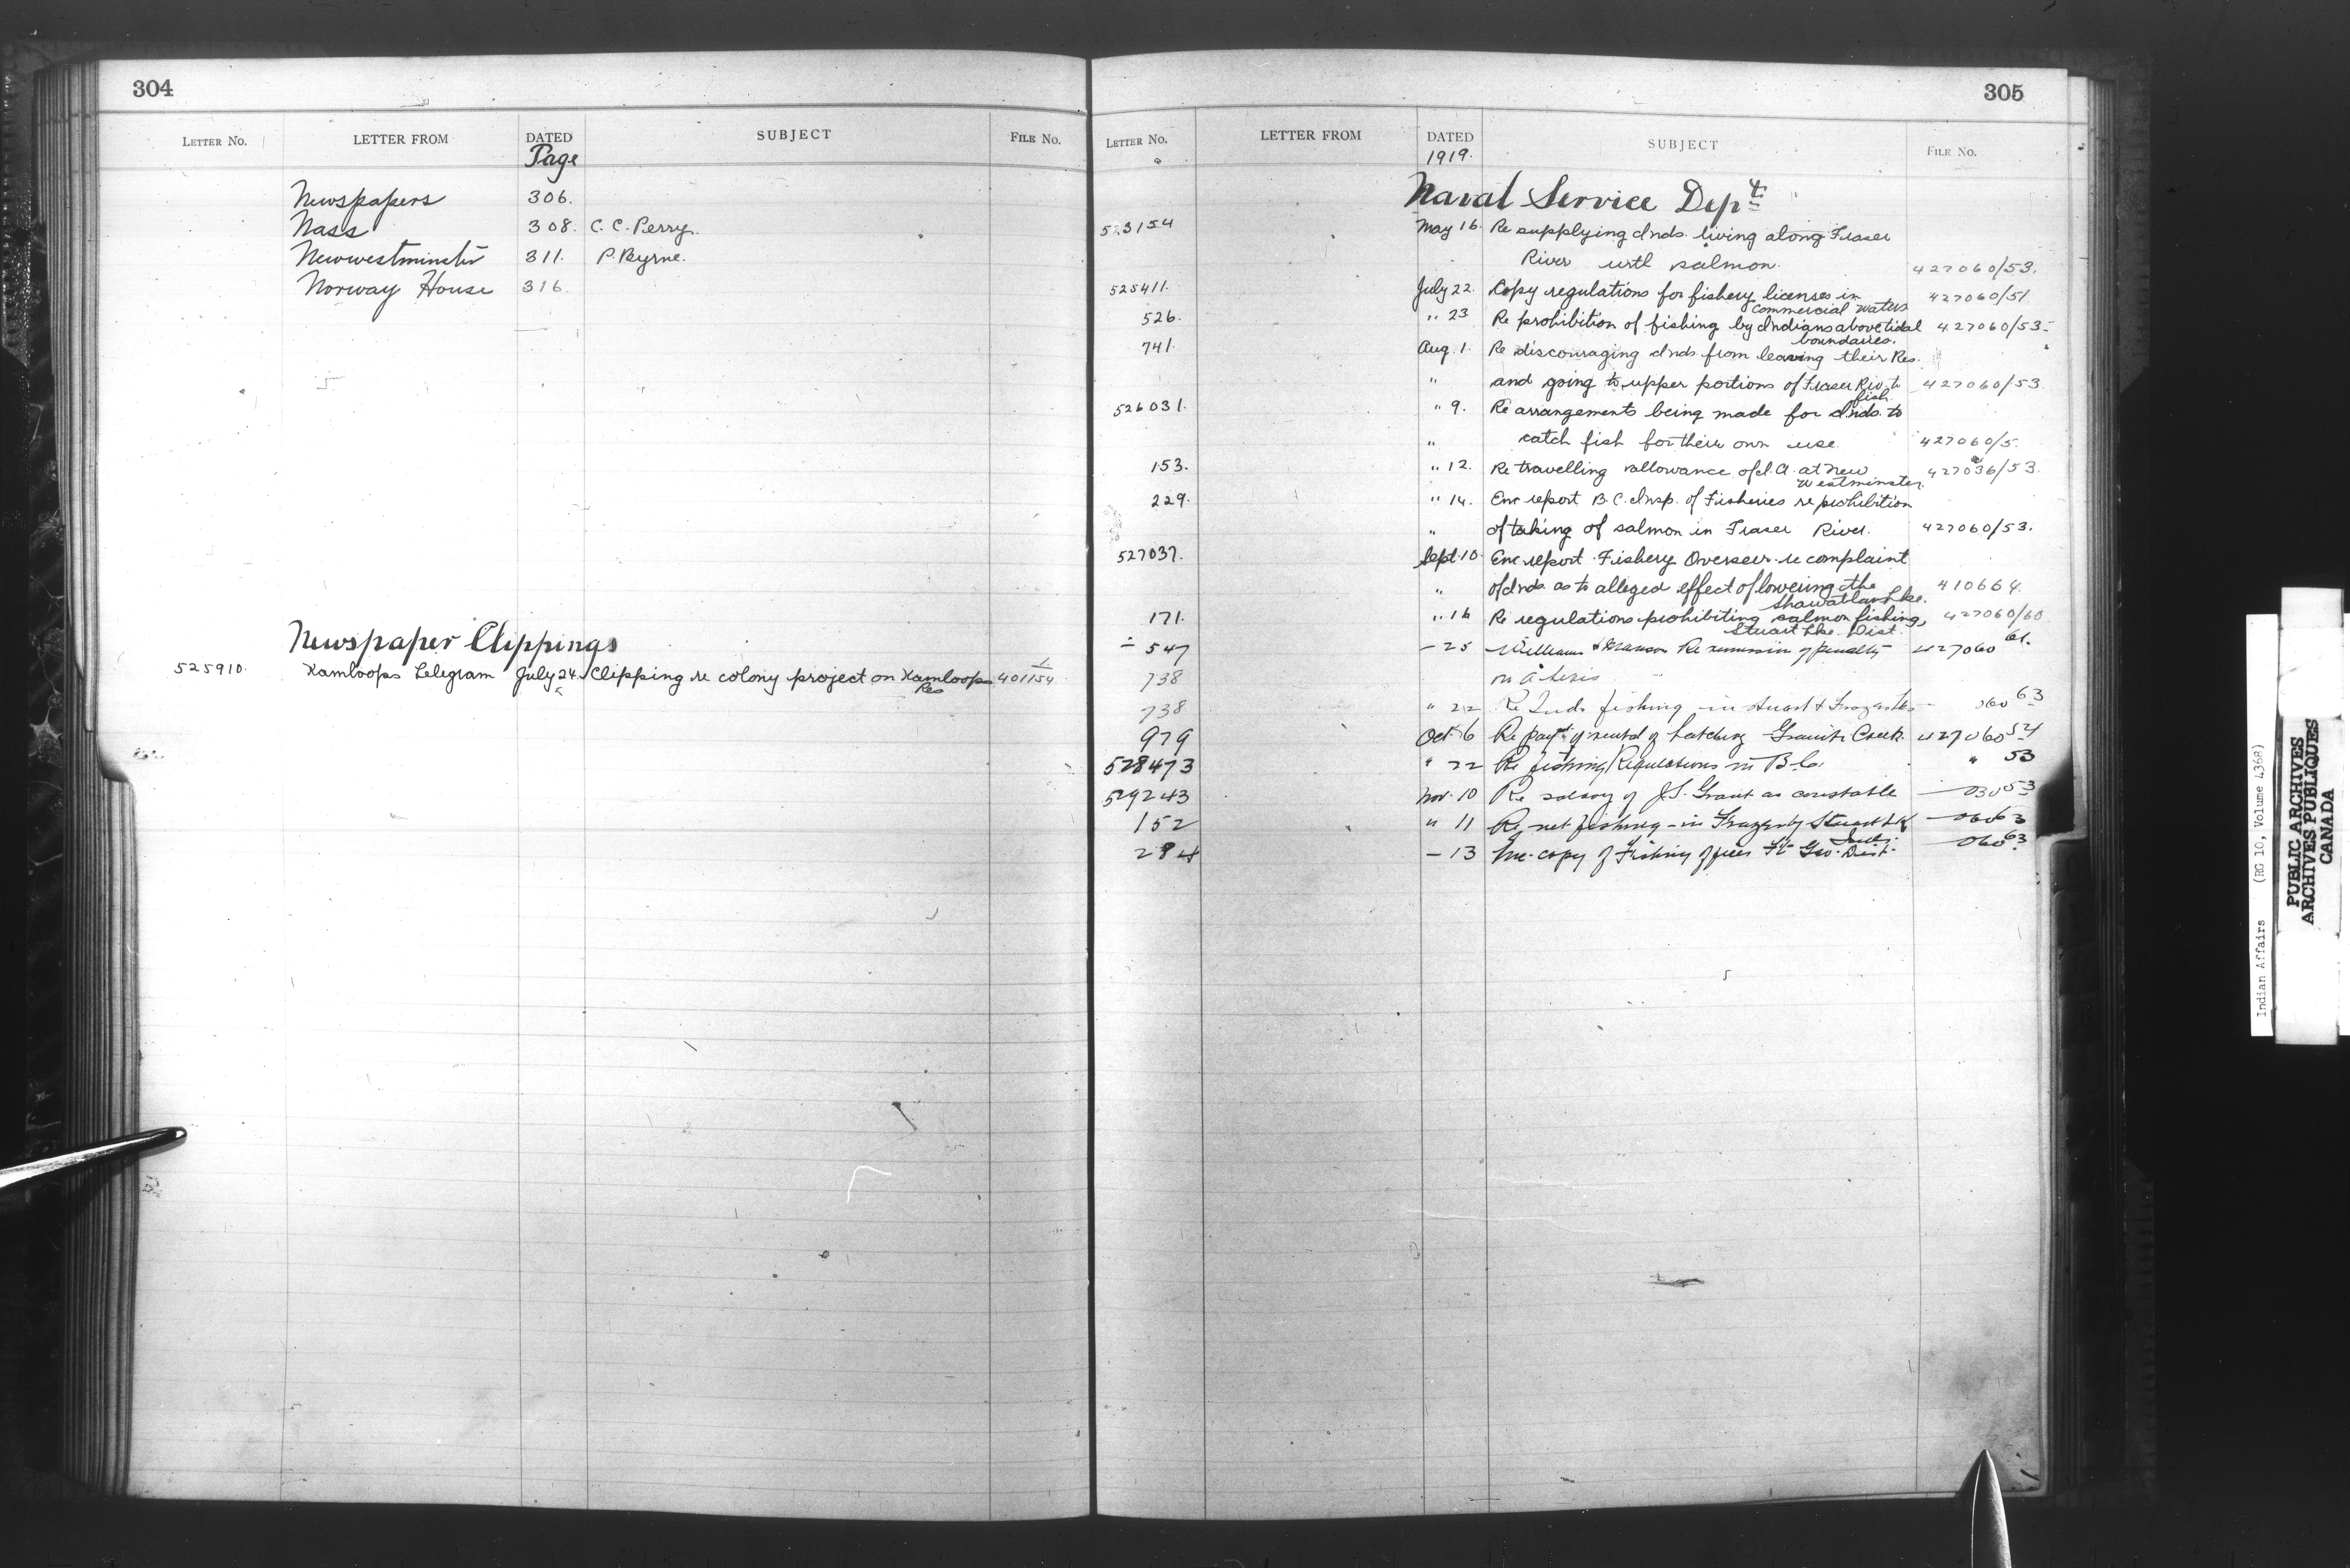 304
LETTER No. LETTER FROM DATED SUBJECT FILE No.
Page
Newspapers 306.
Nass 308. C. C. Perry.
Newwestminster 311. P. Byrne.
Norway House 316.
Newspaper Clippings
525910. Kamloops Telegram July 24. Clipping re colony project on Kamloops 401154
Res
305
LETTER No. LETTER FROM DATED SUBJECT FILE No.
1919.
Naval Service Dept.
523154 May 16. Re supplying Inds. living along Fraser
River with salmon. 427060/53.
525411. July 22. Copy regulations for fishery licenses in 427060/51
Commercial Waters
526. " 23 Re prohibition of fishing by Indians above tidal 427060/53
boundaries.
741. Aug. 1. Re discouraging Inds. from leaving their Res.
" and going to upper portions of Fraser Riv. to 427060/53
fish.
526031. " 9. Re arrangements being made for Inds. to
" catch fish for their own use. 427060/5.
153. " 12. Re travelling allowance of I.A. at New 427036/53.
Westminster.
229. " 14. Enc report B.C. Insp. of Fisheries re prohibition
" of taking of salmon in Fraser River. 427060/53.
527037. Sept. 10. Enc report Fishery Overseer re complaint
" of Inds. as to alleged effect of lowering the 410664.
Lke.
171. " 16 Re regulations prohibiting salmon fishing, 427060/60
Stuart Lke. Dist.
547 25 Re remission of penalty 427060 61.
738
738 " 22 Re Inds fishing in Stuart & 060 63
979 Oct 6 Re payt of rental of hatchery Creek 427060 54
528473 " 22 Re fishing Regulations in B.C. " 53
529243 Nov. 10 Re salary of J.S. Grant as constable 53
152 " 11 Re net fishing in Stuart Lk 063
284 13 Enc copy of Fishing Geo. Dist. 060 63
Indian Affairs (RG 10, Volume 4368)
PUBLIC ARCHIVES
ARCHIVES PUBLIQUES
CANADA